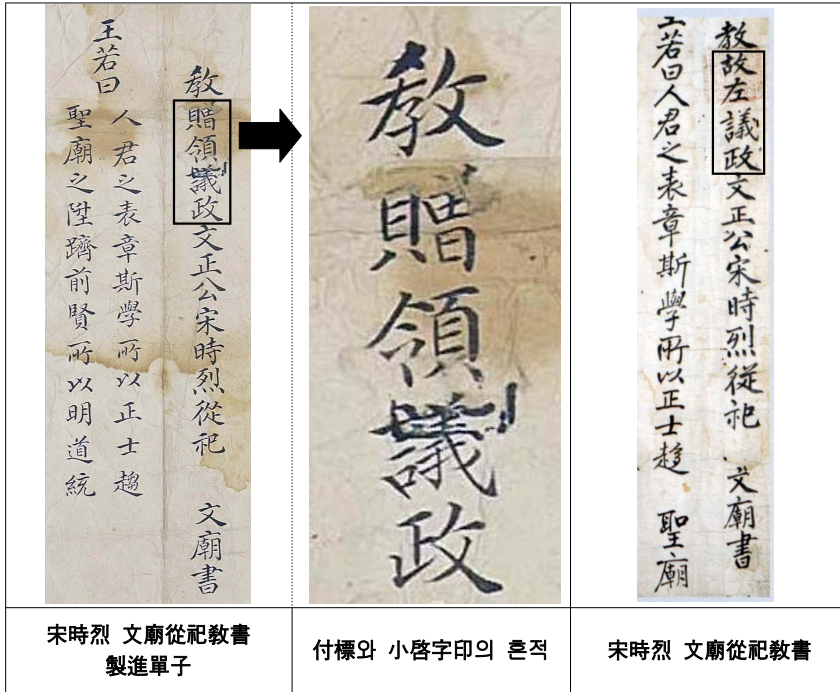 敎贈領議政文正公宋時烈從祀 文廟書
王若曰
人君之表章斯學所以正士趨
聖廟之陞躋前賢所以明道統
敎贈領議政
敎故左議政文正公宋時烈從祀 文廟書
王若曰人君之表章斯學所以正士趍 聖廟
宋時烈 文廟從祀敎書
製進單子
付標와 小啓字印의 흔적
宋時烈 文廟從祀敎書